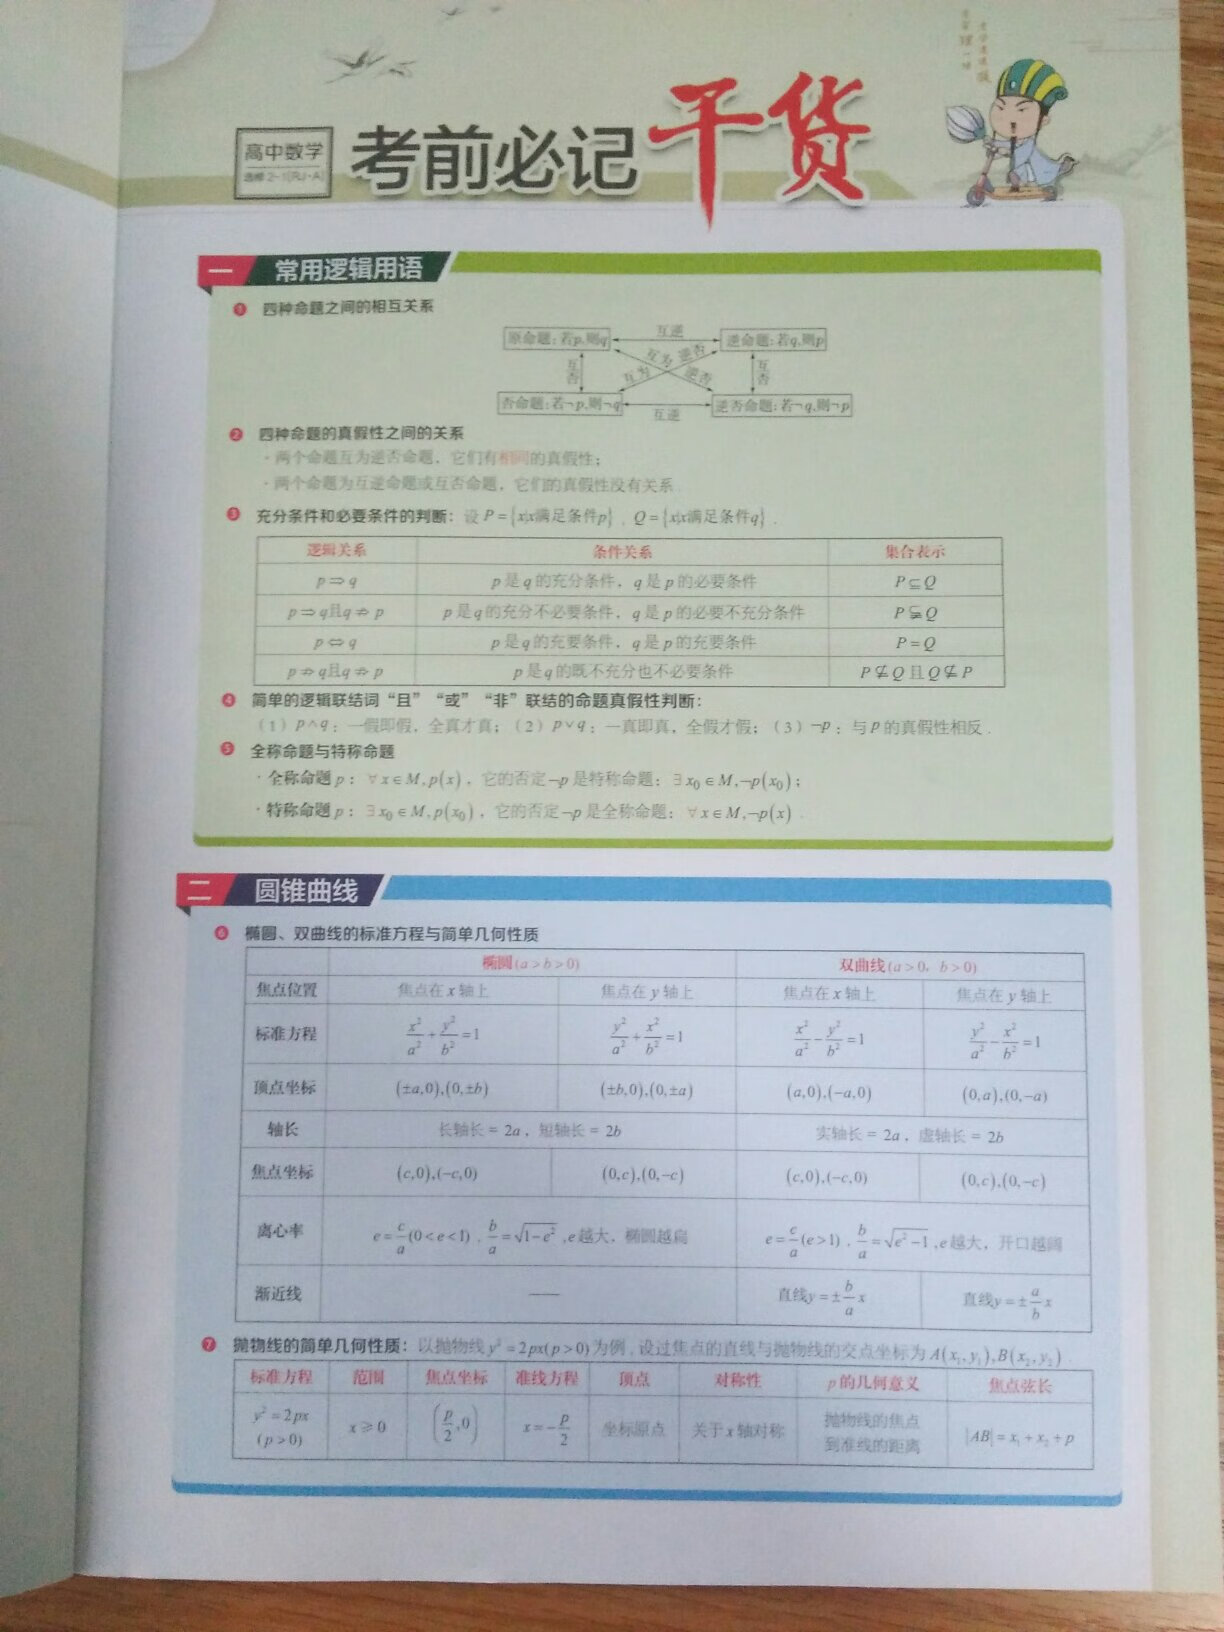 高中数学
选修2-1(RJ·A)
考前必记干货
一 常用逻辑用语
1 四种命题之间的相互关系
原命题:若p,则q 互逆 逆命题:若q,则p
互否 互为 逆否 互为 逆否 互否
否命题:若¬p,则¬q 互逆 逆否命题:若¬q,则¬p
2 四种命题的真假性之间的关系
·两个命题互为逆否命题,它们有相同的真假性;
·两个命题为互逆命题或互否命题,它们的真假性没有关系.
3 充分条件和必要条件的判断:设P={x|x满足条件p},Q={x|x满足条件q}.
逻辑关系 条件关系 集合表示
p⇒q p是q的充分条件,q是p的必要条件 P⊆Q
p⇒q且q⇏p p是q的充分不必要条件,q是p的必要不充分条件 P⫋Q
p⇔q p是q的充要条件,q是p的充要条件 P=Q
p⇏q且q⇏p p是q的既不充分也不必要条件 P⊈Q且Q⊈P
4 简单的逻辑联结词“且”“或”“非”联结的命题真假性判断:
(1)p∧q:一假即假,全真才真;(2)p∨q:一真即真,全假才假;(3)¬p:与p的真假性相反.
5 全称命题与特称命题
·全称命题p:∀x∈M,p(x),它的否定¬p是特称命题:∃x₀∈M,¬p(x₀);
·特称命题p:∃x₀∈M,p(x₀),它的否定¬p是全称命题:∀x∈M,¬p(x).
二 圆锥曲线
6 椭圆、双曲线的标准方程与简单几何性质
椭圆(a>b>0) 双曲线(a>0,b>0)
焦点位置 焦点在x轴上 焦点在y轴上 焦点在x轴上 焦点在y轴上
标准方程 x²/a²+y²/b²=1 y²/a²+x²/b²=1 x²/a²-y²/b²=1 y²/a²-x²/b²=1
顶点坐标 (±a,0),(0,±b) (±b,0),(0,±a) (a,0),(-a,0) (0,a),(0,-a)
轴长 长轴长=2a,短轴长=2b 实轴长=2a,虚轴长=2b
焦点坐标 (c,0),(-c,0) (0,c),(0,-c) (c,0),(-c,0) (0,c),(0,-c)
离心率 e=c/a(0<e<1),b/a=√(1-e²),e越大,椭圆越扁 e=c/a(e>1),b/a=√(e²-1),e越大,开口越阔
渐近线 —— 直线y=±b/a x 直线y=±a/b x
7 抛物线的简单几何性质:以抛物线y²=2px(p>0)为例,设过焦点的直线与抛物线的交点坐标为A(x₁,y₁),B(x₂,y₂).
标准方程 范围 焦点坐标 准线方程 顶点 对称性 p的几何意义 焦点弦长
y²=2px (p>0) x≥0 (p/2,0) x=-p/2 坐标原点 关于x轴对称 抛物线的焦点到准线的距离 |AB|=x₁+x₂+p